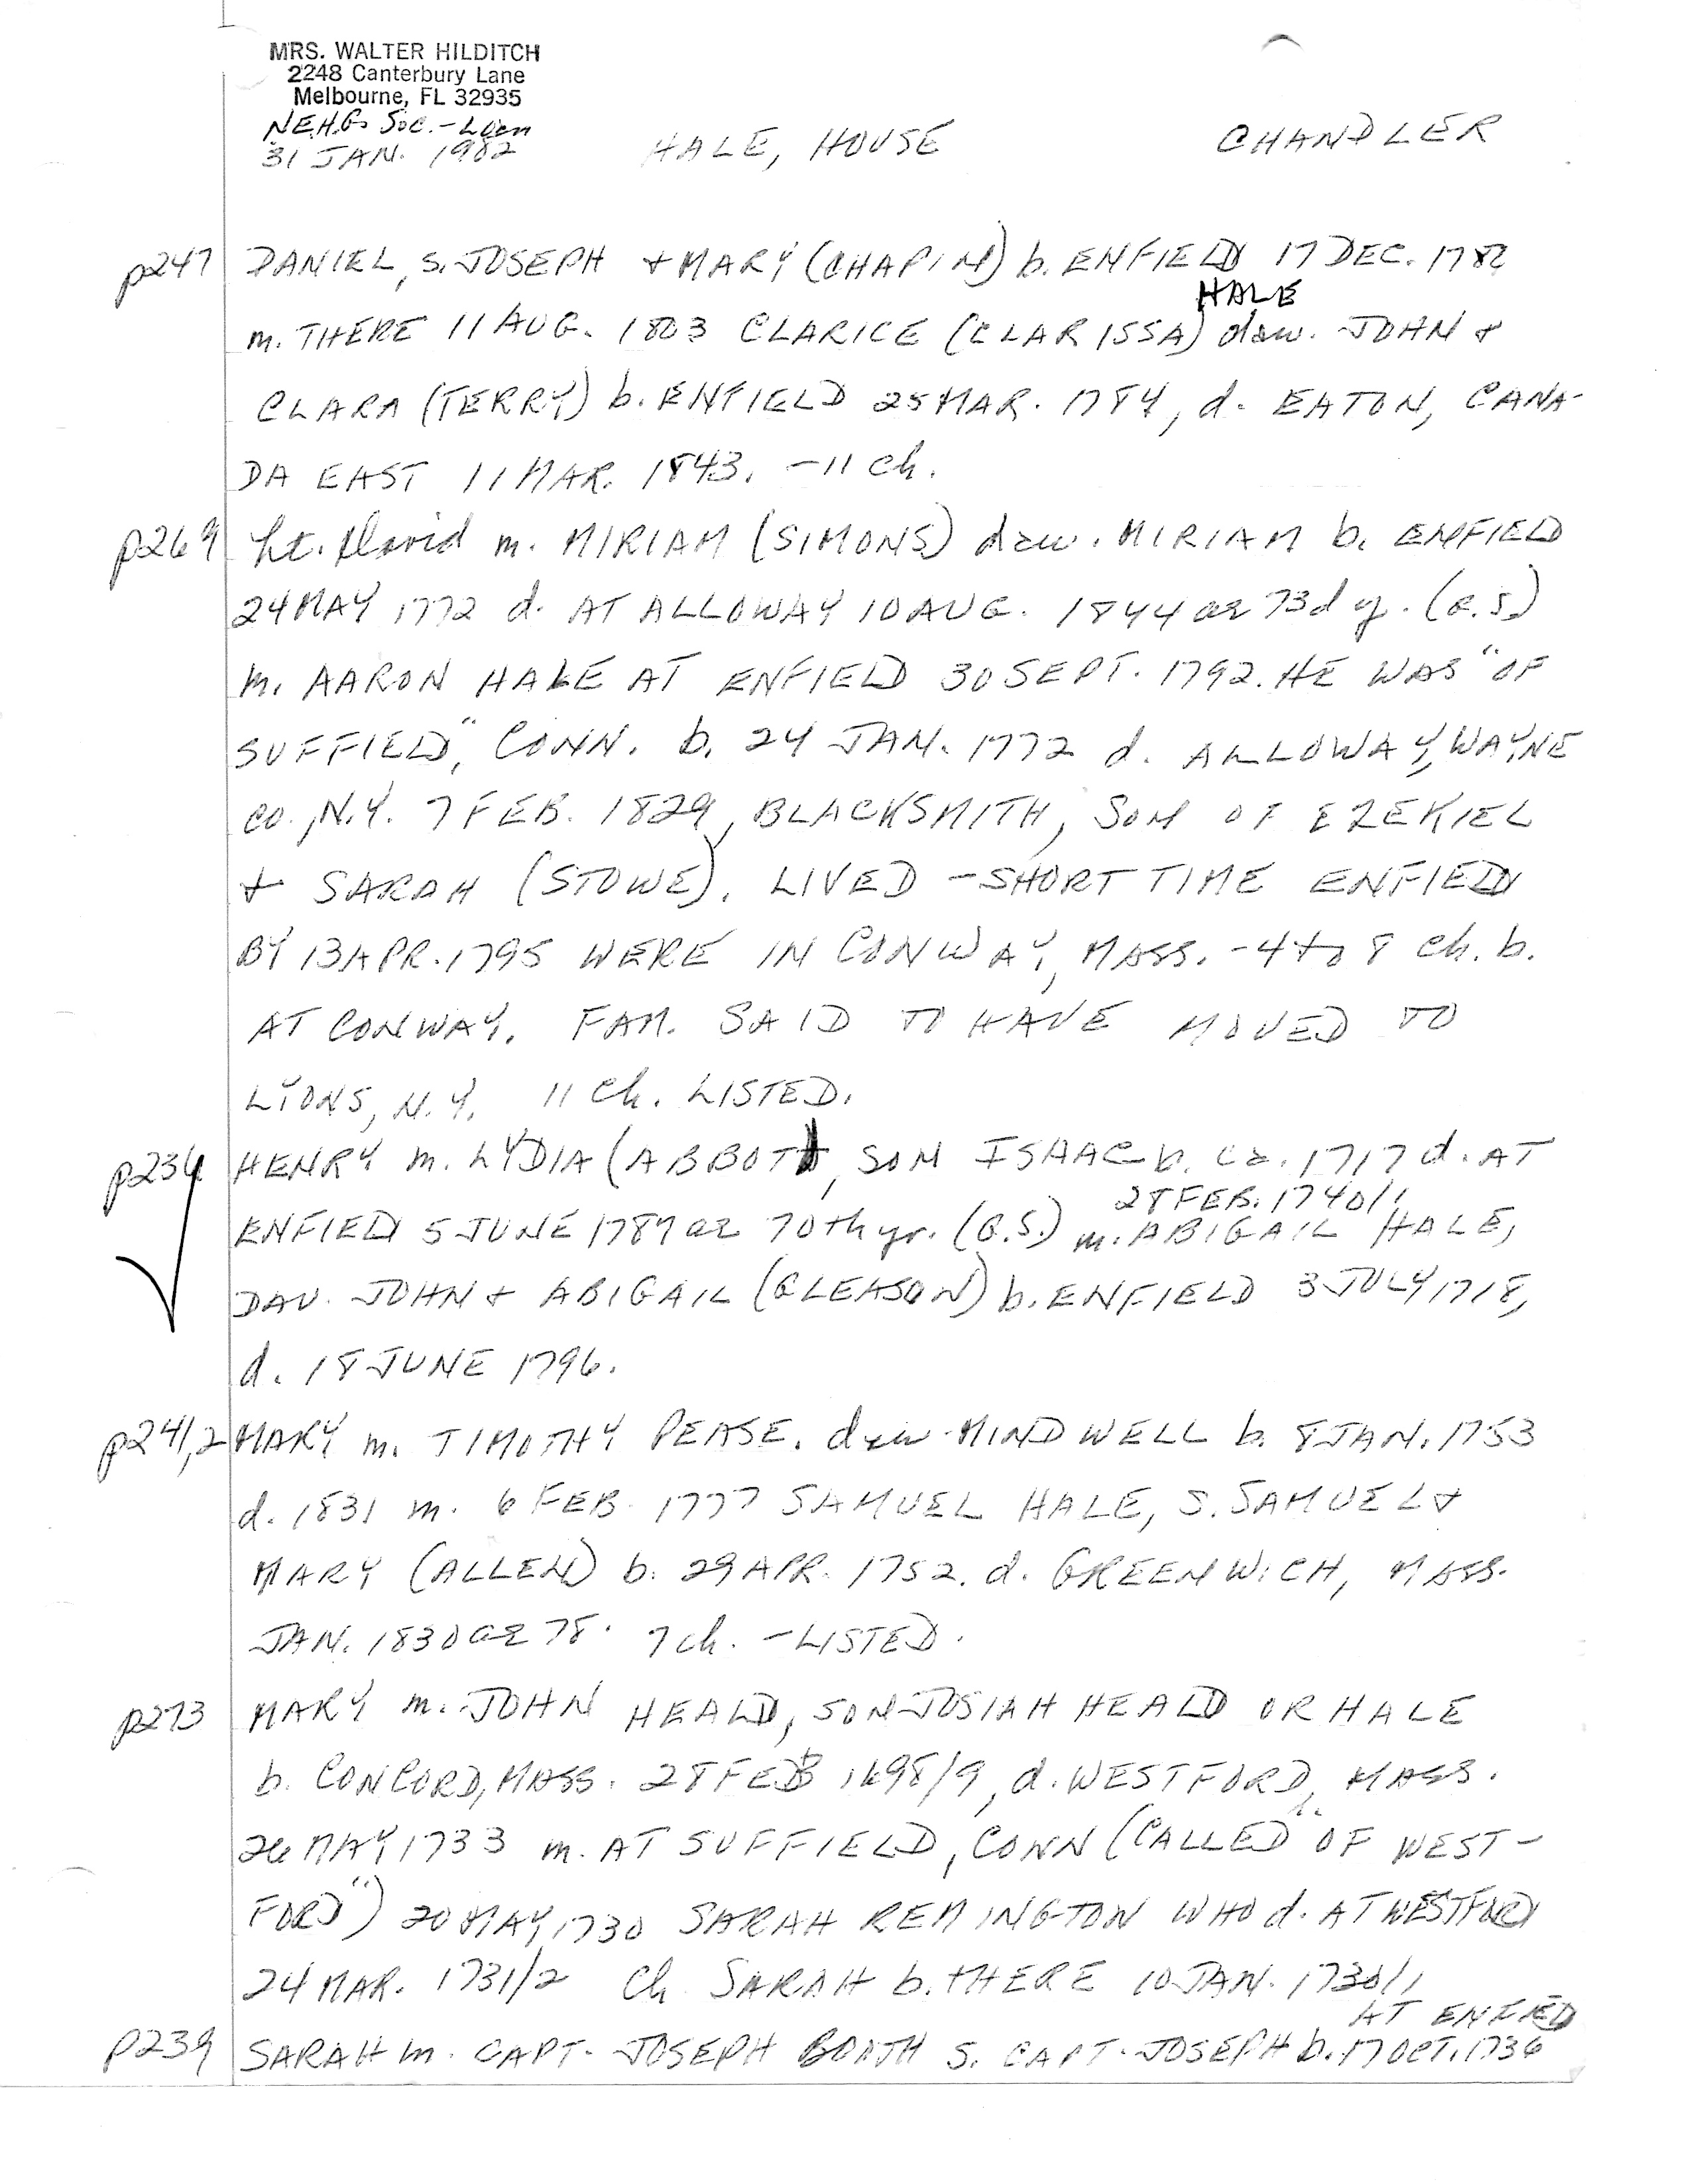 MRS. WALTER HILDITCH
2248 Canterbury Lane
Melbourne, FL 32935
N.E.H.G. Soc. - Loan
31 JAN. 1982 HALE, HOUSE CHANDLER
p247 DANIEL, s. JOSEPH + MARY (CHAPIN) b. ENFIELD 17 DEC. 1782
HALE
m. THERE 11 AUG. 1803 CLARICE (CLARISSA) dau. JOHN +
CLARA (TERRY) b. ENFIELD 25 MAR. 1784, d. EATON, CANA-
DA EAST 11 MAR. 1843. - 11 ch.
p269 Lt. David m. MIRIAM (SIMONS) dau. MIRIAM b. ENFIELD
24 MAY 1772 d. AT ALLOWAY 10 AUG. 1844 ae 73d y. (G.S.)
m. AARON HALE AT ENFIELD 30 SEPT. 1792. HE WAS "OF
SUFFIELD," CONN. b. 24 JAN. 1772 d. ALLOWAY, WAYNE
CO., N.Y. 7 FEB. 1829, BLACKSMITH, SON OF EZEKIEL
+ SARAH (STOWE). LIVED - SHORT TIME ENFIELD
BY 13 APR. 1795 WERE IN CONWAY, MASS. - 4 to 8 ch. b.
AT CONWAY. FAM. SAID TO HAVE MOVED TO
LYONS, N.Y. 11 ch. LISTED.
p234 HENRY m. LYDIA (ABBOTT), SON ISAAC b. ca. 1717 d. AT
28 FEB. 1740/1
ENFIELD 5 JUNE 1787 ae 70th yr. (G.S.) m. ABIGAIL HALE,
DAU. JOHN + ABIGAIL (GLEASON) b. ENFIELD 3 JULY 1718,
d. 18 JUNE 1796.
p241,2 MARY m. TIMOTHY PEASE. dau MINDWELL b. 8 JAN. 1753
d. 1831 m. 6 FEB. 1777 SAMUEL HALE, S. SAMUEL +
MARY (ALLEN) b. 29 APR. 1752. d. GREENWICH, MASS.
JAN. 1830 ae 78. 7 ch. - LISTED.
p273 MARY m. JOHN HEALD, SON JOSIAH HEALD OR HALE
b. CONCORD, MASS. 28 FEB 1698/9, d. WESTFORD, MASS.
26 MAY 1733 m. AT SUFFIELD, CONN (CALLED "OF WEST-
FORD") 20 MAY, 1730 SARAH REMINGTON WHO d. AT WESTFORD
24 MAR. 1731/2 Ch SARAH b. THERE 10 JAN. 1730/1
AT ENFIELD
p239 SARAH m. CAPT. JOSEPH BOOTH S. CAPT. JOSEPH b. 17 OCT. 1736